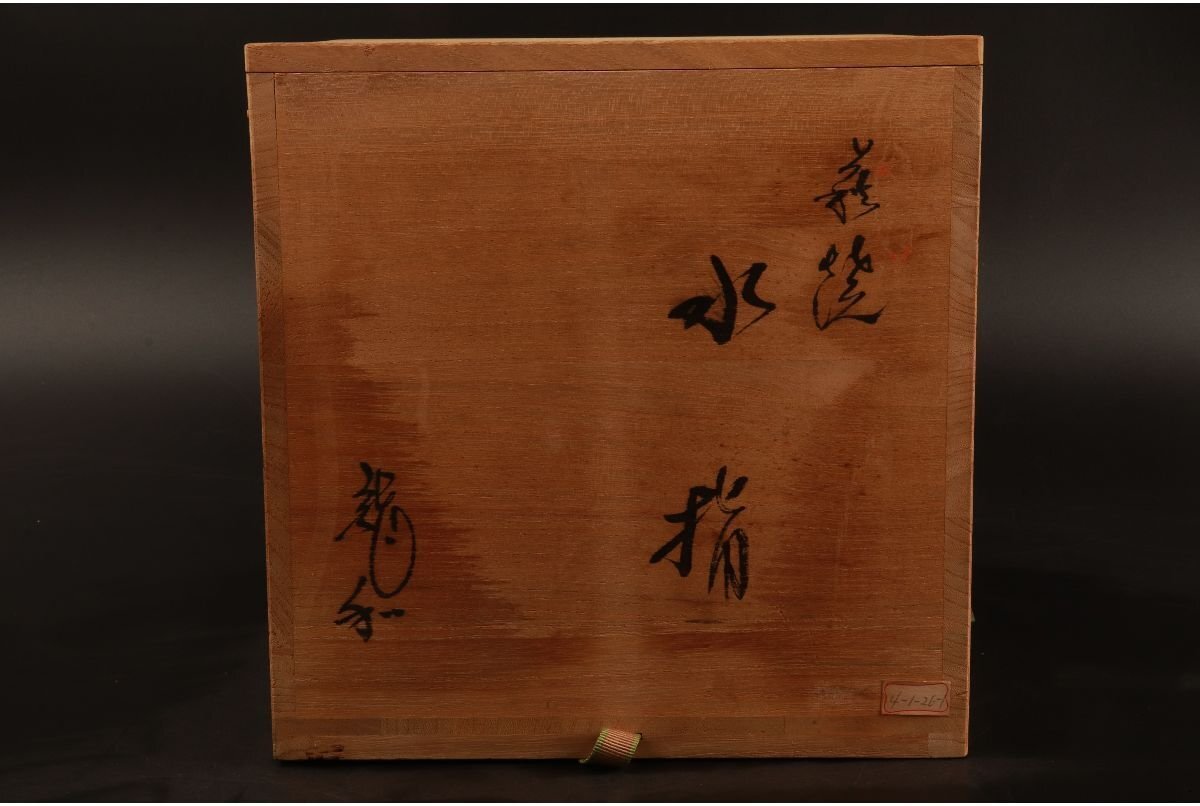 萩焼
水指
龍和
4-1-26-1